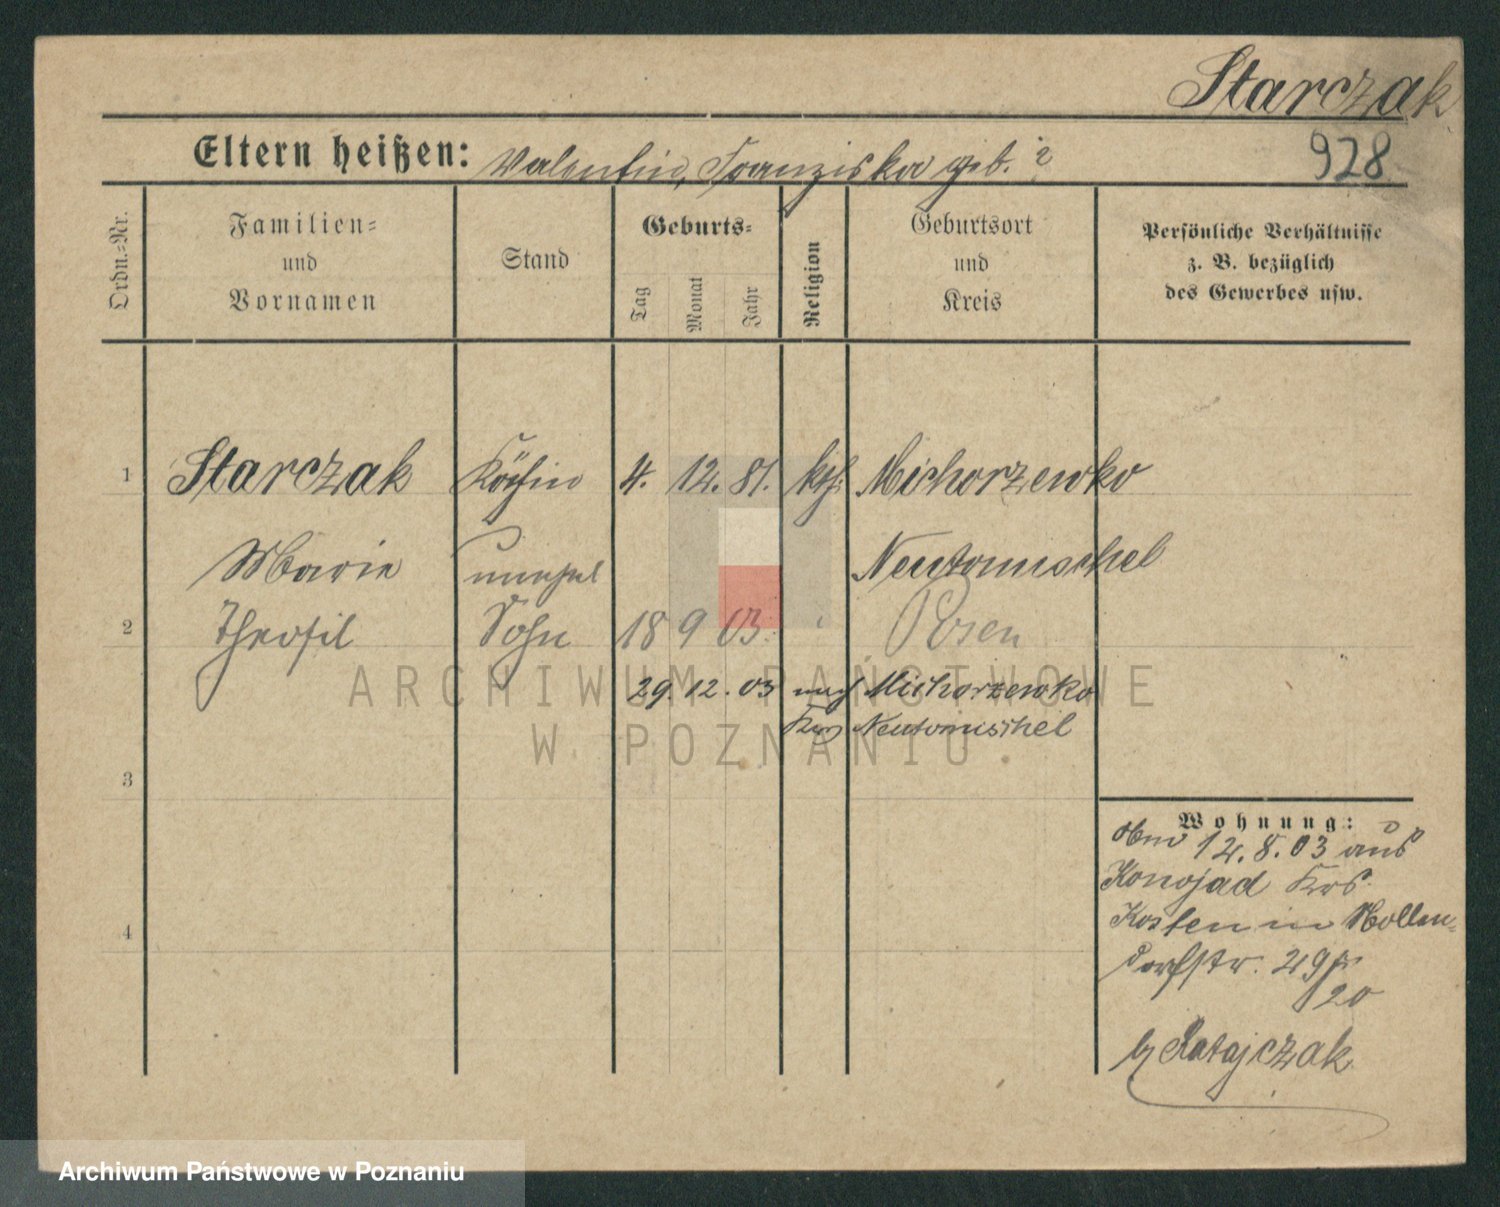 Starczak
928
Eltern heißen: Valentin, Franziska geb. ?
Ordn.=Nr.
Familien=
und
Vornamen
Stand
Geburts=
Tag
Monat
Jahr
Religion
Geburtsort
und
Kreis
Persönliche Verhältnisse
z. B. bezüglich
des Gewerbes usw.
1 Starczak Köchin 4. 12. 81. kth. Michorzewko
Marie unehel Neutomischel
2 Theofil Sohn 18 9 03. Posen
29. 12. 03 nach Michorzewko
Krs Neutomischel
3
4
Wohnung:
12. 8. 03 aus
Konojad Krs.
Kosten in Hollen=
dorfstr. 29
20
b/ Ratajczak
ARCHIWUM PAŃSTWOWE
W POZNANIU
Archiwum Państwowe w Poznaniu